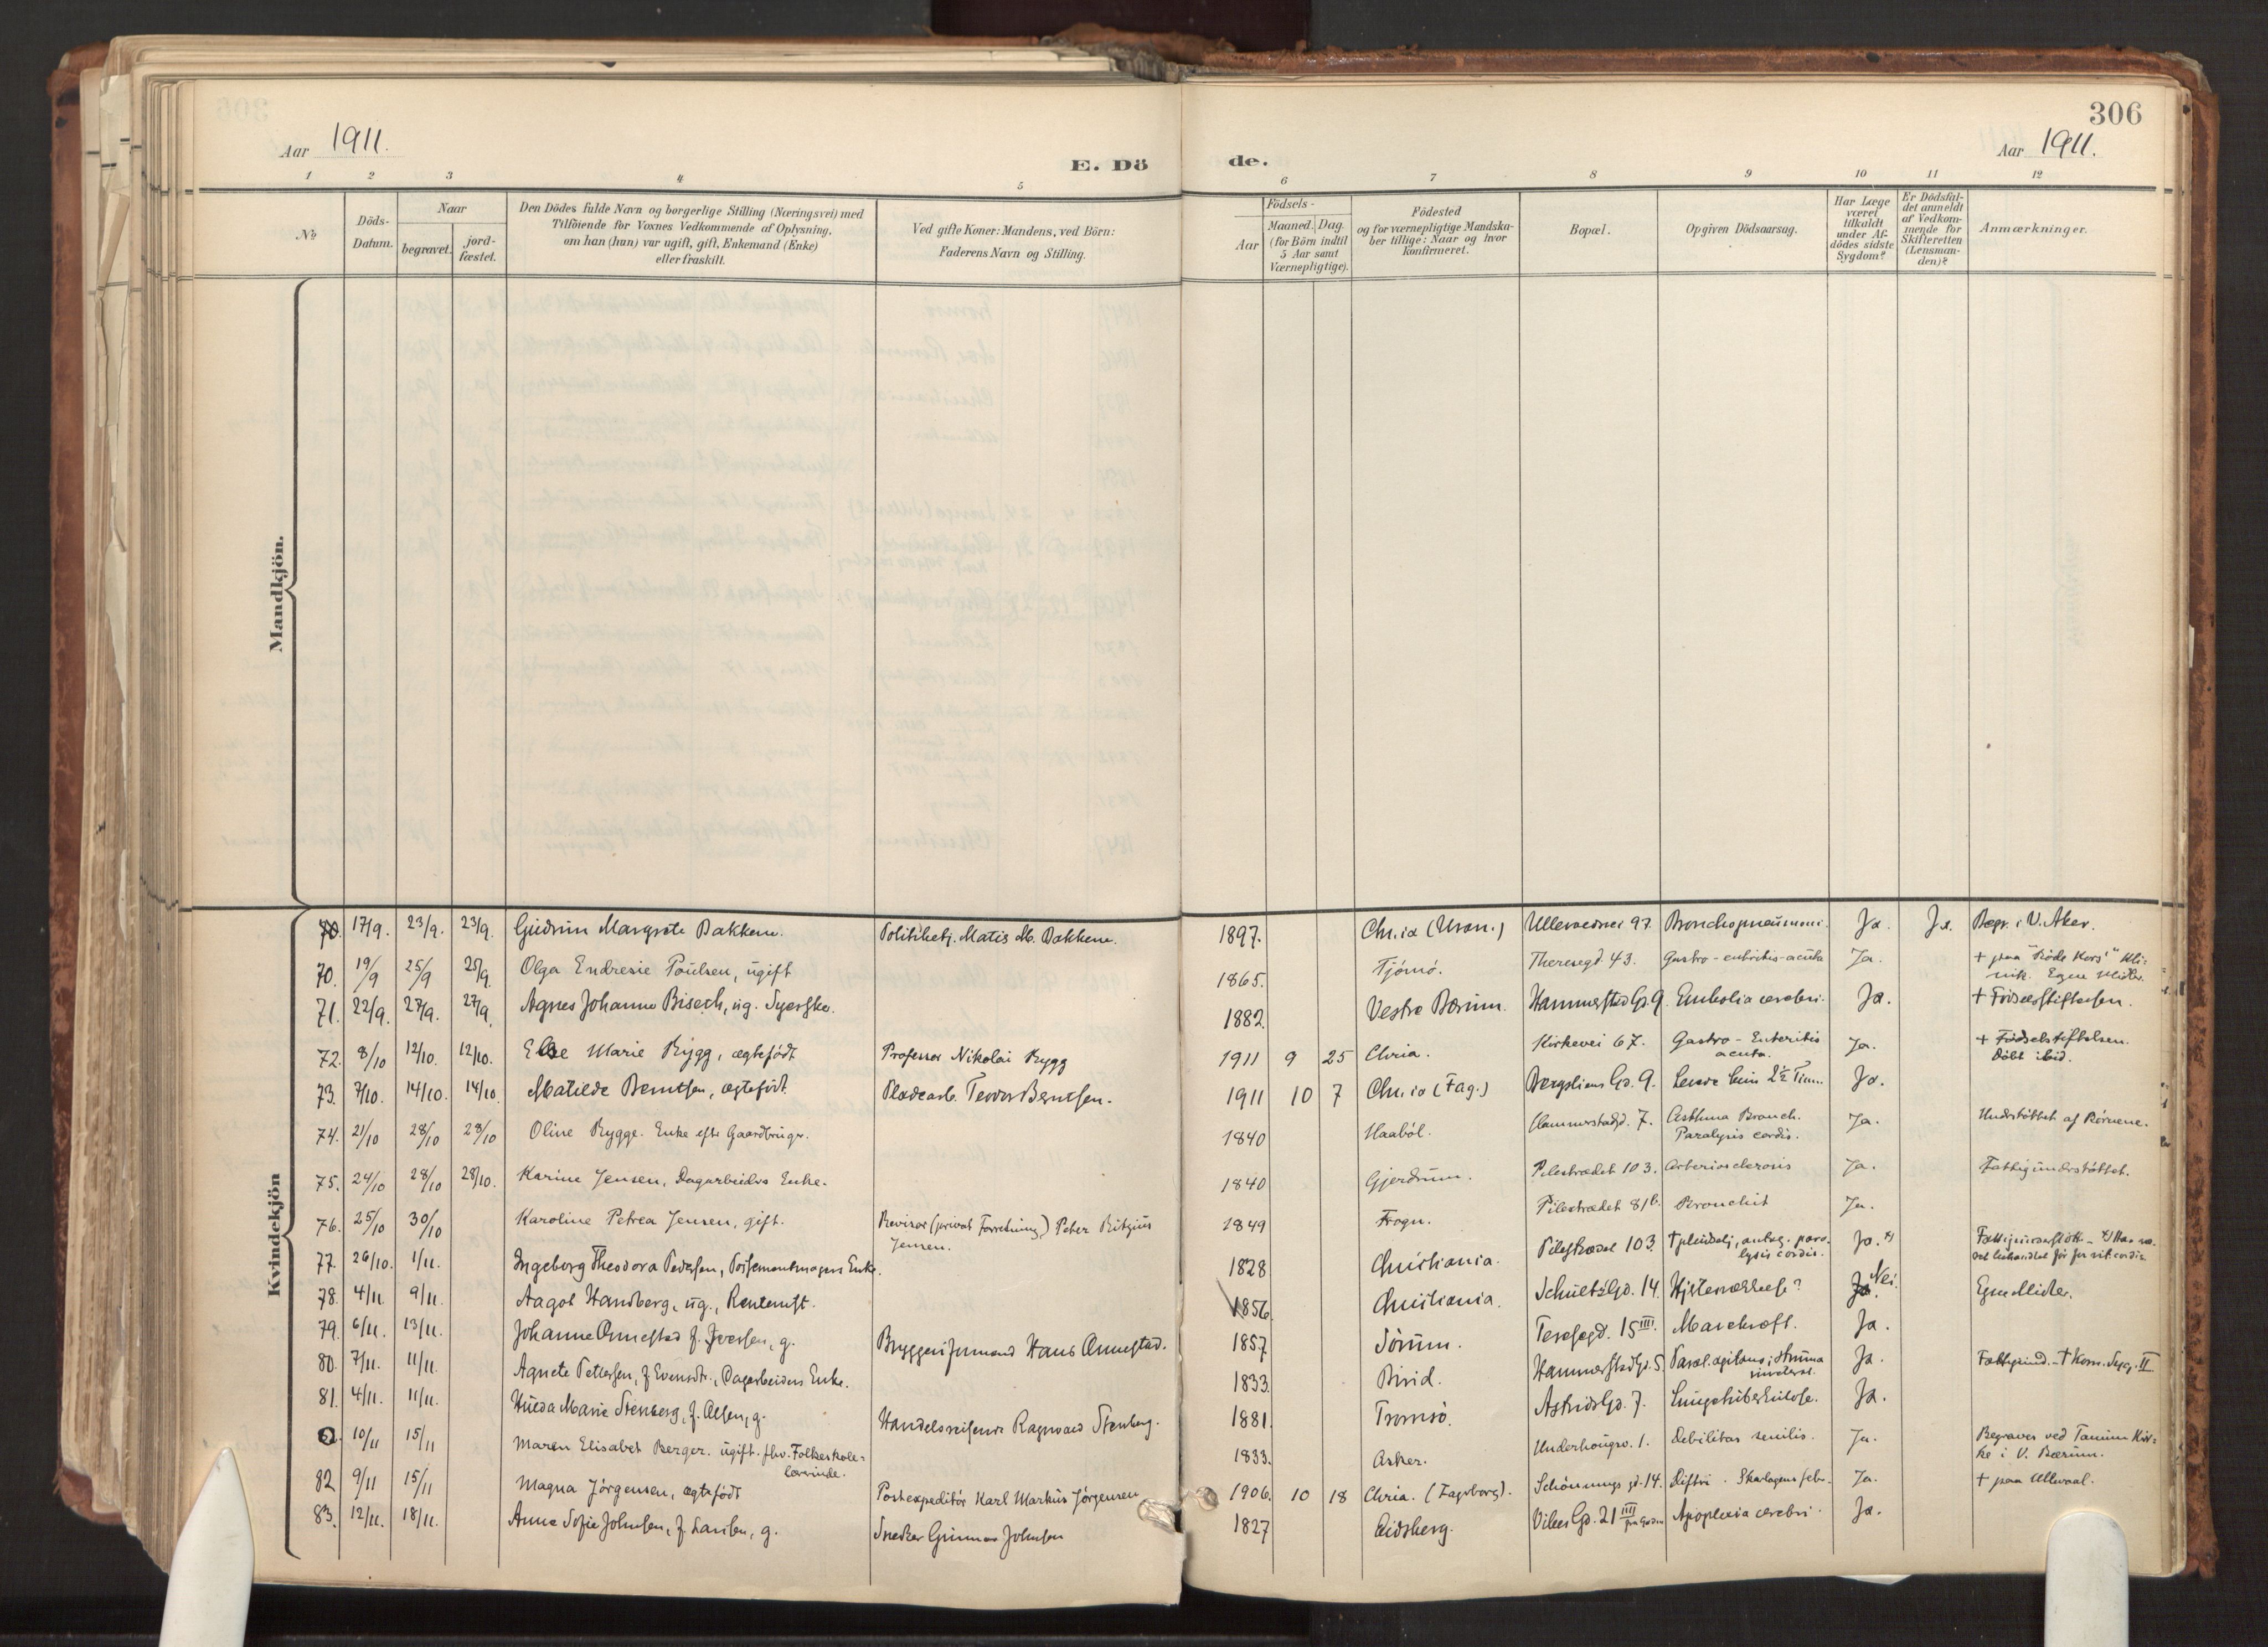 306
Aar 1911.
E. Dö
de.
Aar 1911.
1 2 3 4 5 6 7 8 9 10 11 12
No
Döds-
Datum.
Naar
begravet.
jord-
fæstet.
Den Dödes fulde Navn og borgerlige Stilling (Næringsvei) med
Tilföiende for Voxnes Vedkommende af Oplysning,
om han (hun) var ugift, gift, Enkemand (Enke)
eller fraskilt.
Ved gifte Koner: Mandens, ved Börn:
Faderens Navn og Stilling.
Födsels-
Aar
Maaned. Dag.
(for Börn indtil
5 Aar samt
Værnepligtige).
Födested
og for værnepligtige Mandska-
ber tillige: Naar og hvor
konfirmeret.
Bopæl.
Opgiven Dödsaarsag.
Har Læge
været
tilkaldt
under Af-
dödes sidste
Sygdom?
Er Dödsfal-
det anmeldt
af Vedkom-
mende for
Skifteretten
(Lensman-
den)?
Anmærkninger.
Mandkjön.
Kvindekjön
70. 17/9. 23/9. 23/9. Gudrun Margrete Bakkene. Politibetj. Matis M. Bakkene. 1897. Chr.ia (Uran.) Ullevoldsvei 97. Bronchopneumoni. Ja. Ja. Begr. i V. Aker.
70. 19/9 25/9 25/9. Olga Endresie Poulsen, ugift 1865. Tjömö. Theresegd 43. Gastro-enteritis-acuta Ja. + paa "Röde Kors" Kli-
nik. Egne Midler.
71. 22/9. 27/9. 27/9. Agnes Johanne Bisech, ug. Syerske. 1882. Vestre Bærum. HammerstadGd. 9. Embolia cerebri. Ja. + Födselsstiftelsen.
72. 8/10 12/10. 12/10. Else Marie Rygg, ægtefödt Professor Nikolai Rygg 1911 9 25 Chria. Kirkevei 67. Gastro-Enteritis
acuta. Ja. + Fødselsstiftelsen.
Döbt ibid.
73. 7/10. 14/10. 14/10. Matilde Berntsen, ægtefödt. Pladearb. Teodor Berntsen. 1911 10 7 Chr.ia (Fag.) Bergsliens Gd. 9. Levde kun 2½ Tim. Ja.
74. 21/10 28/10 28/10 Oline Rygge. Enke efter Gaardbruger. 1840 Haaböl. Hammerstadgd. 7. Asthma Bronch.
Paralysis cordis. Ja. Understöttet af Börnene.
75. 24/10 28/10 28/10. Karine Jensen, Dagarbeiders Enke. 1840 Gjerdrum. Pilestrædet 103. Arteriosclerosis Ja. Fattigunderstöttet.
76. 25/10 30/10 Karoline Petrea Jensen, gift. Revisor (privat Forretning) Peter
Jensen. 1849 Frogn. Pilestrædet 81b. Bronchit Ja.
77. 26/10. 1/11. Ingeborg Theodora Pedersen, Possementmagers Enke. 1828 Christiania. Pilestrædet 103. + pludselig, antag. para-
lysis cordis. Ja.
78. 4/11. 9/11. Aagot Handberg, ug., Rentenist. 1856. Christiania. SchultzGd. 14. Hjertelammelse? Ja. Nei. Egne Midler.
79. 6/11. 13/11. Johanne Annestad f. Iversen, g. Bryggeriformand Hans Annestad. 1857 Sörum. Teresegd. 15 IIII. Mavekræft. Ja.
80. 7/11. 11/11. Agnete Pettersen, f. Evensdtr., Dagarbeiders Enke. 1833. Birid. HammerstadGd. 5 Paral. agitans; struma Ja. Fattigund. - + Kom. Syg. II
81. 4/11. 11/11. Hilda Marie Stenberg, f. Olsen, g. Handelsreisende Ragnvald Stenberg. 1881. Tromsö. AstridsGd. 7. Lungetuberkulose. Ja.
10/11 15/11 Maren Elisabet Berger. ugift. fhv. Folkeskole-
lærerinde. 1833. Asker. Underhaugsv. 1. Debilitas senilis. Ja. Begraves ved Tanum Kir-
ke i V. Bærum.
82 9/11 15/11 Magna Jörgensen, ægtefödt Postexpeditör Karl Markus Jörgensen 1906. 10 18 Chria. (Fagerborg). Schönnings gd. 14. Difteri. Skarlagensfeber. Ja. + paa Ullevaal.
83. 12/11. 18/11. Anne Sofie Johnsen, f. Larsen, g. Snedker Gunnar Johnsen 1827 Eidsberg. Vibes Gd. 21 IIII Apoplexia cerebri. Ja.